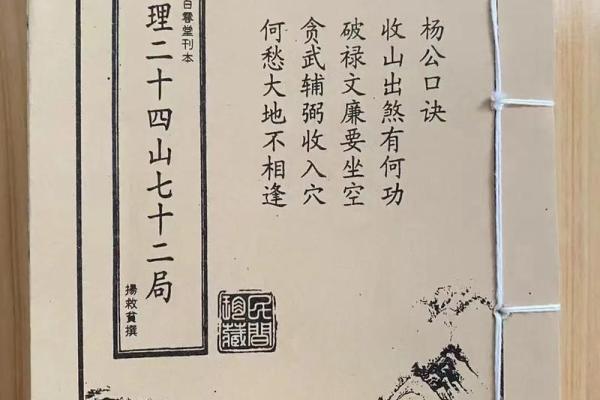 杨公口诀
收山出煞有何功
破禄文廉要坐空
贪武辅弼收入穴
何愁大地不相逢
民間
珍藏
白雲堂刊本
理二十四山七十二局
揚救貧撰